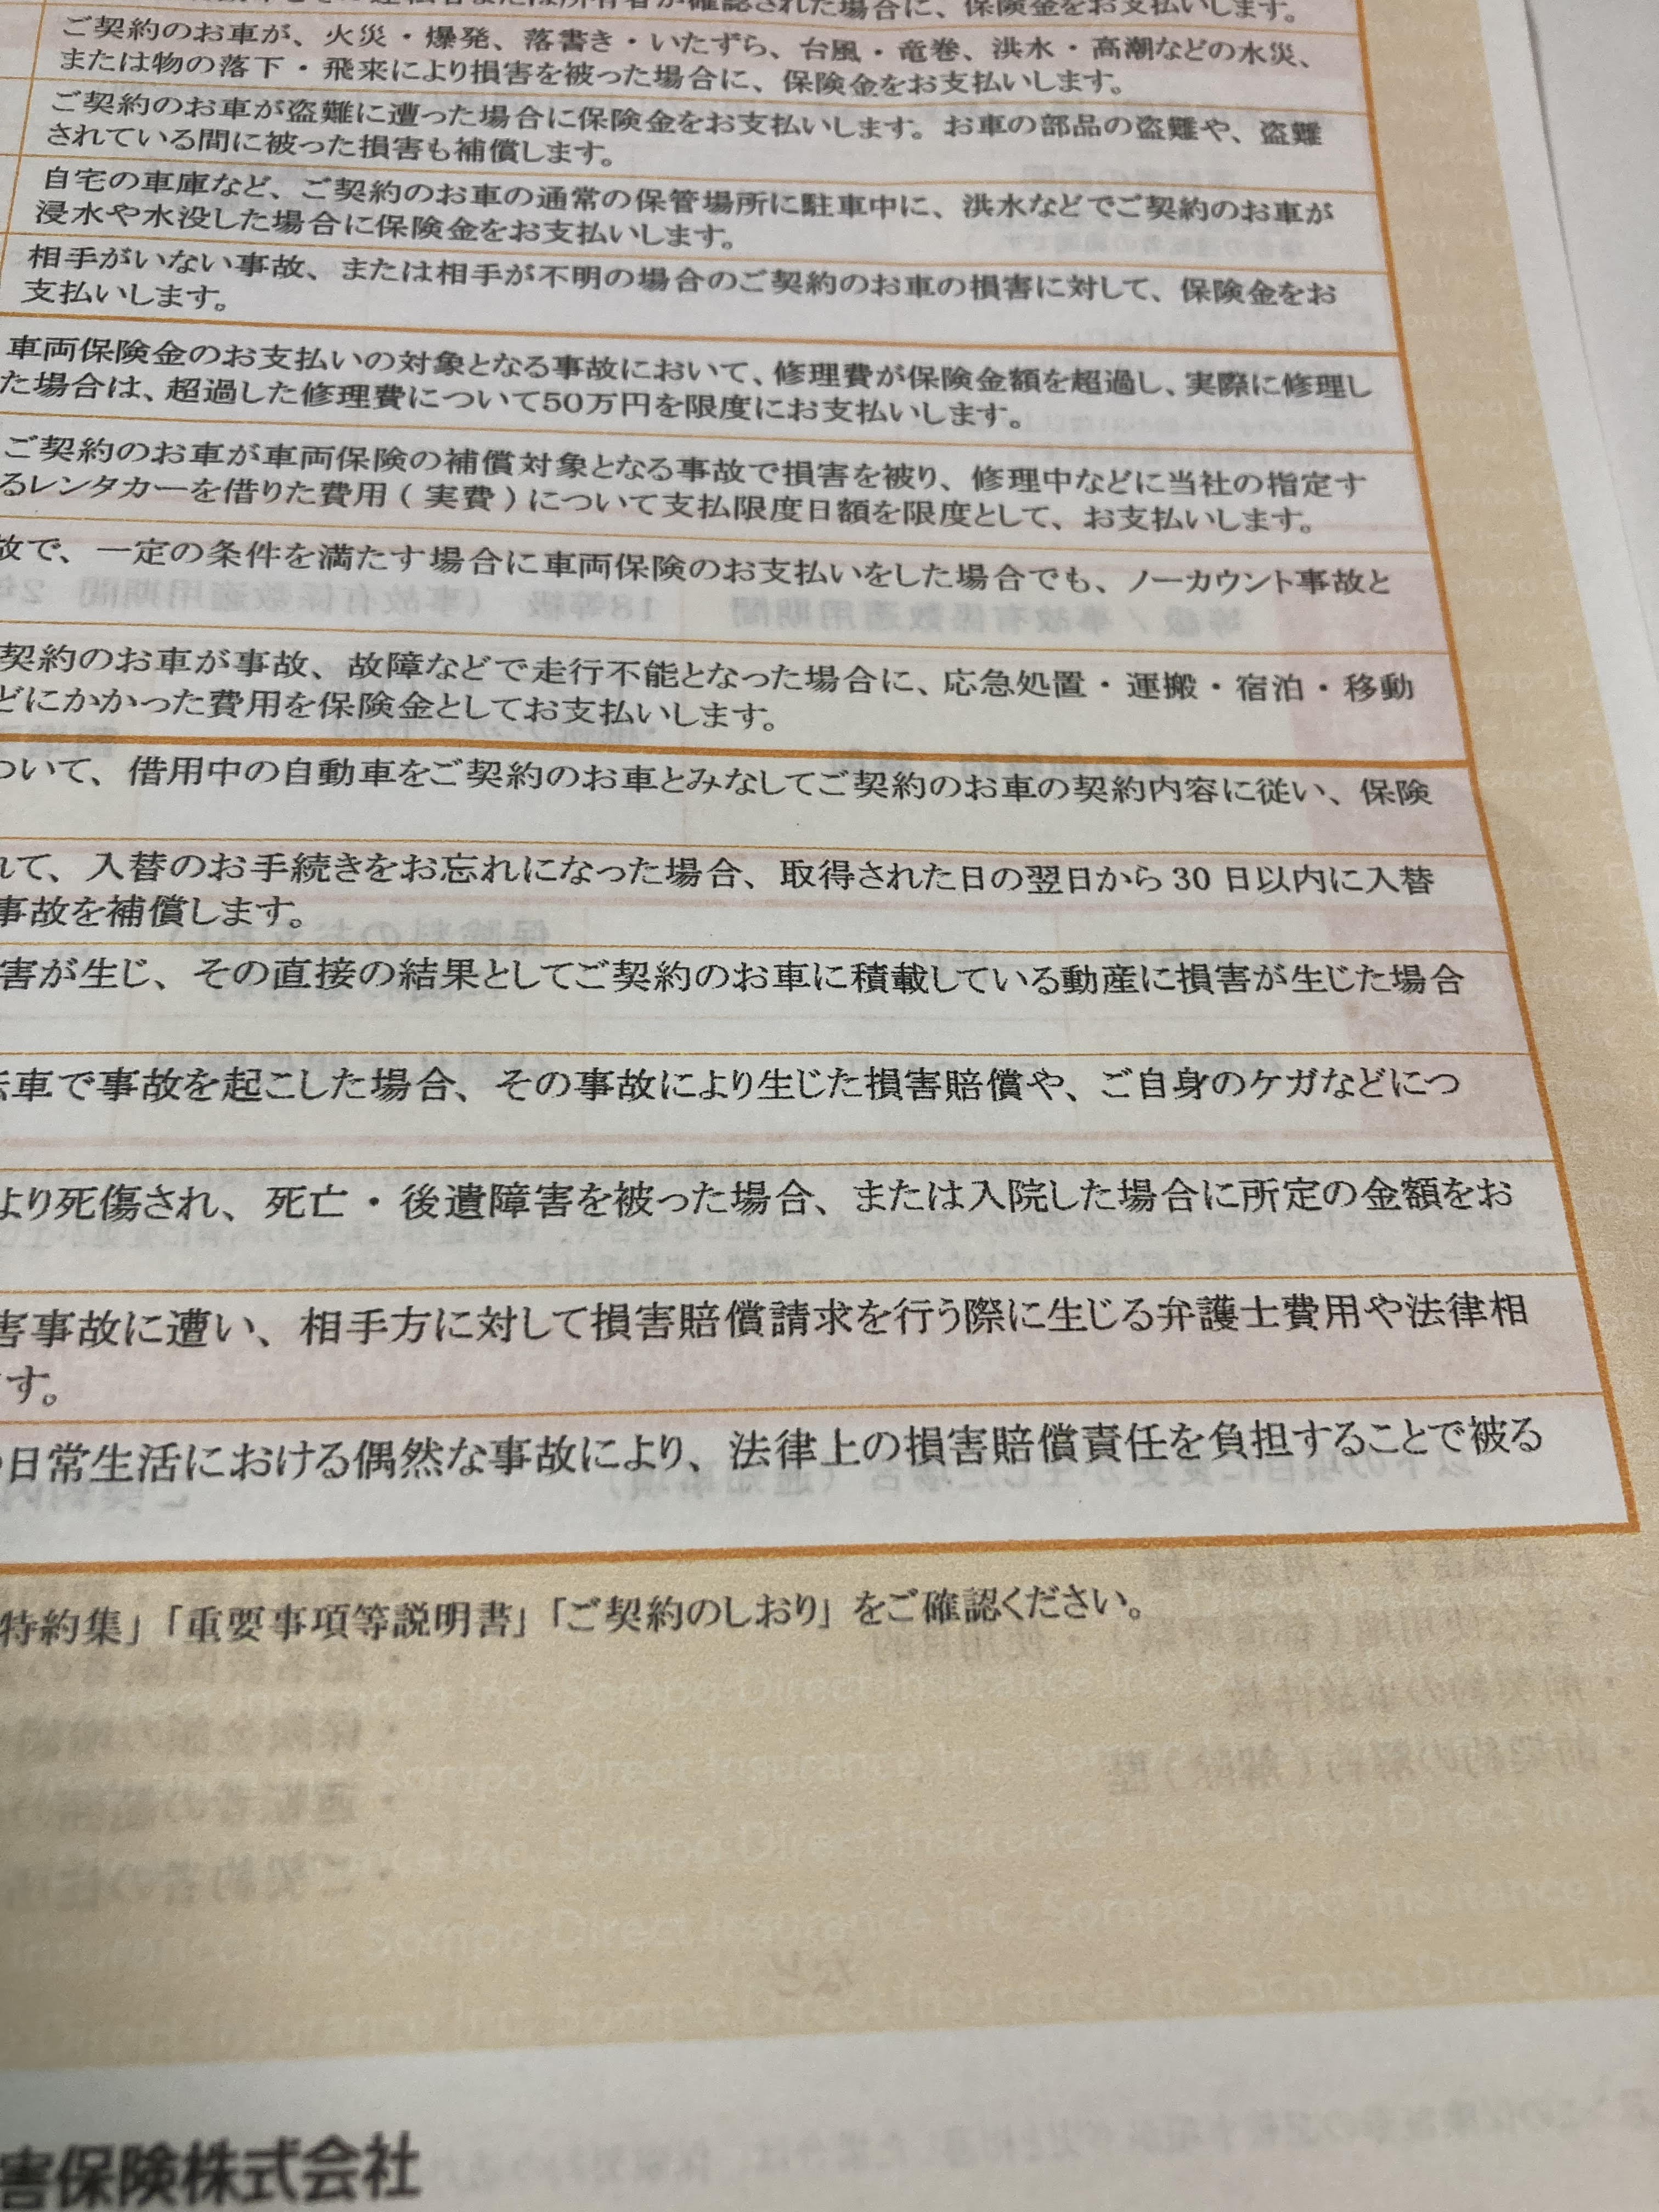 確認された場合に、保険金をお支払いします。
ご契約のお車が、火災・爆発、落書き・いたずら、台風・竜巻、洪水・高潮などの水災、
または物の落下・飛来により損害を被った場合に、保険金をお支払いします。
ご契約のお車が盗難に遭った場合に保険金をお支払いします。お車の部品の盗難や、盗難
されている間に被った損害も補償します。
自宅の車庫など、ご契約のお車の通常の保管場所に駐車中に、洪水などでご契約のお車が
浸水や水没した場合に保険金をお支払いします。
相手がいない事故、または相手が不明の場合のご契約のお車の損害に対して、保険金をお
支払いします。
車両保険金のお支払いの対象となる事故において、修理費が保険金額を超過し、実際に修理し
た場合は、超過した修理費について50万円を限度にお支払いします。
ご契約のお車が車両保険の補償対象となる事故で損害を被り、修理中などに当社の指定す
るレンタカーを借りた費用(実費)について支払限度日額を限度として、お支払いします。
故で、一定の条件を満たす場合に車両保険のお支払いをした場合でも、ノーカウント事故と
契約のお車が事故、故障などで走行不能となった場合に、応急処置・運搬・宿泊・移動
どにかかった費用を保険金としてお支払いします。
ついて、借用中の自動車をご契約のお車とみなしてご契約のお車の契約内容に従い、保険
れて、入替のお手続きをお忘れになった場合、取得された日の翌日から30日以内に入替
事故を補償します。
害が生じ、その直接の結果としてご契約のお車に積載している動産に損害が生じた場合
車で事故を起こした場合、その事故により生じた損害賠償や、ご自身のケガなどにつ
より死傷され、死亡・後遺障害を被った場合、または入院した場合に所定の金額をお
害事故に遭い、相手方に対して損害賠償請求を行う際に生じる弁護士費用や法律相
す。
日常生活における偶然な事故により、法律上の損害賠償責任を負担することで被る
特約集」「重要事項等説明書」「ご契約のしおり」をご確認ください。
Sompo Direct Insurance Inc.
害保険株式会社